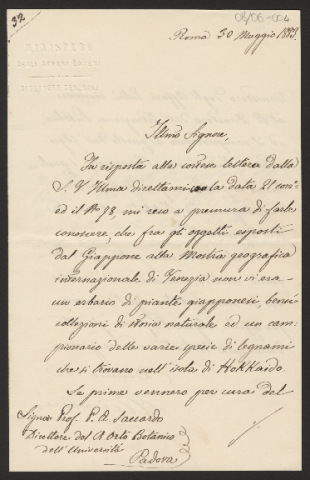 32
08/06-004
Roma 30 Maggio 1883.
Illmo Signore,
In risposta alla cortese lettera dalla
S. V. Illma direttami colla data 21 corr.e
ed il No 98 mi reco a premura di farle
conoscere, che fra gli oggetti esposti
dal Giappone alla Mostra geografica
internazionale di Venezia non vi era
un erbario di piante giapponesi, bensì
collezioni di storia naturale ed un cam-
pionario delle varie specie di legnami
che si trovano nell'isola di Hokkaido
Le prime vennero per cura del
Signor Prof. P. A. Saccardo
Direttore del R. Orto Botanico
dell'Università
Padova